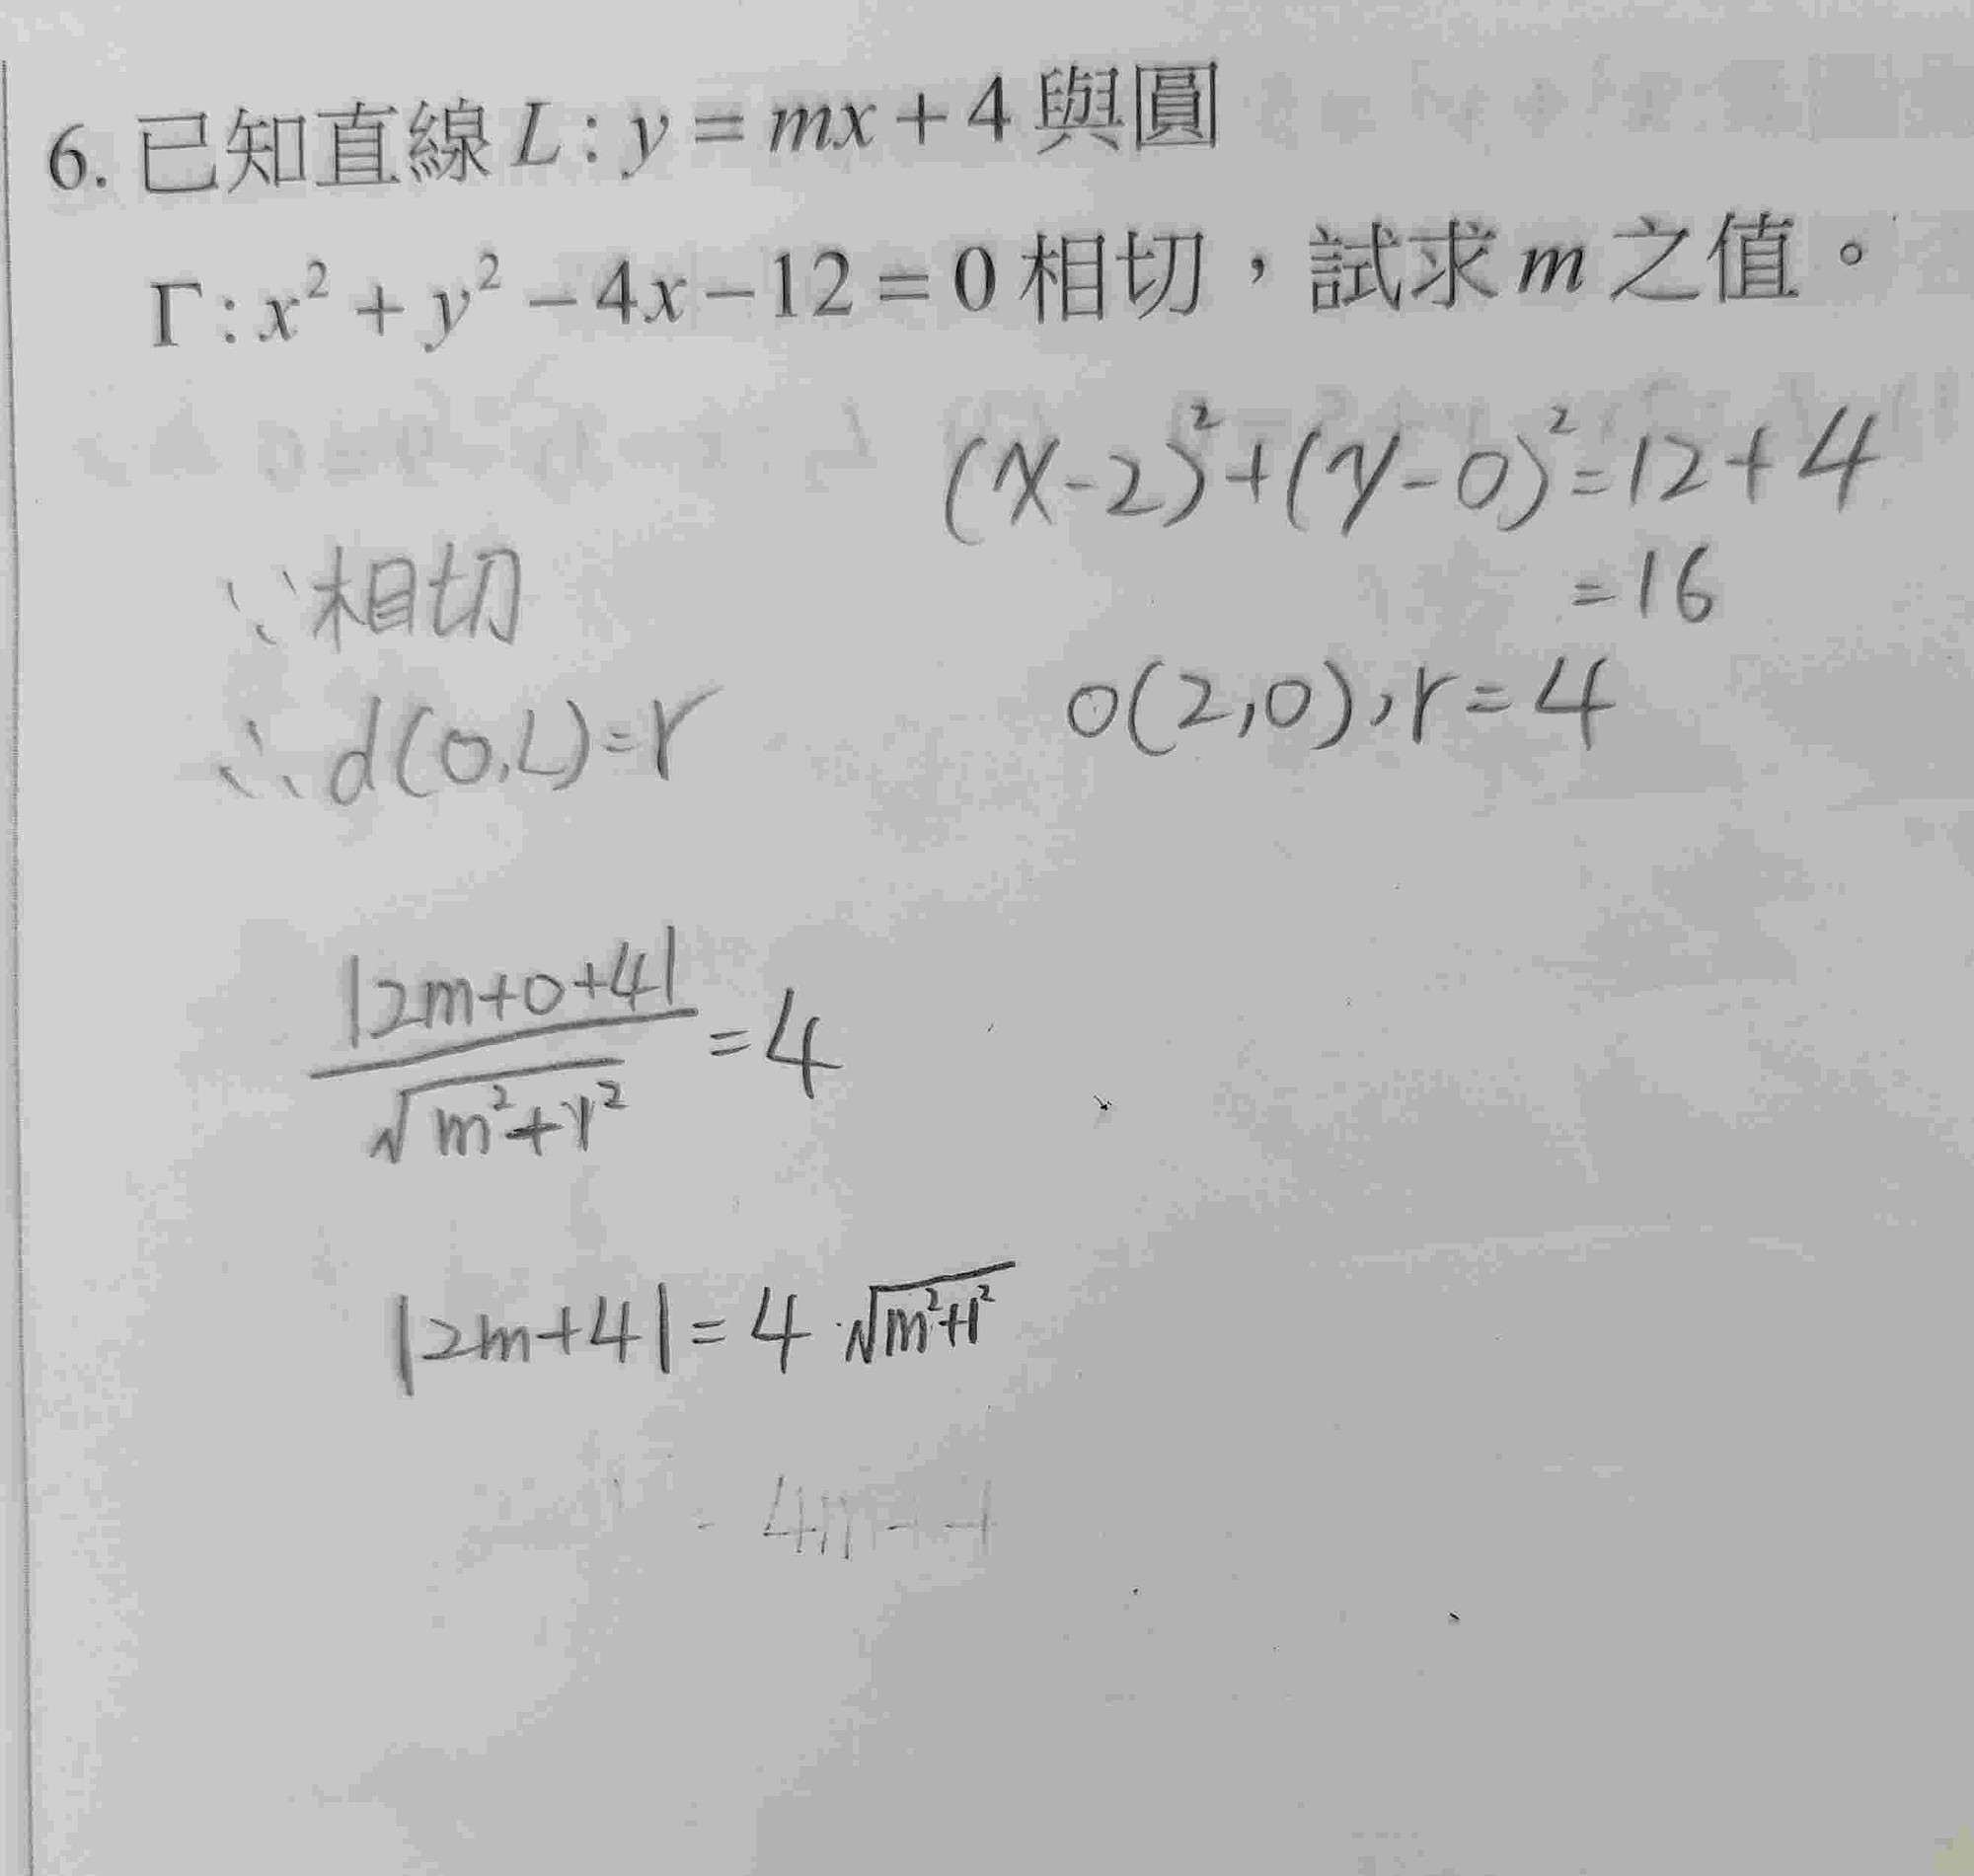 6. 已知直線 L : y = mx + 4 與圓
Γ : x² + y² − 4x − 12 = 0 相切，試求 m 之值。
(x-2)²+(y-0)²=12+4
=16
∵相切
O(2,0),r=4
∴d(O,L)=r
|2m+0+4|
=4
√m²+1²
|2m+4|=4√m²+1²